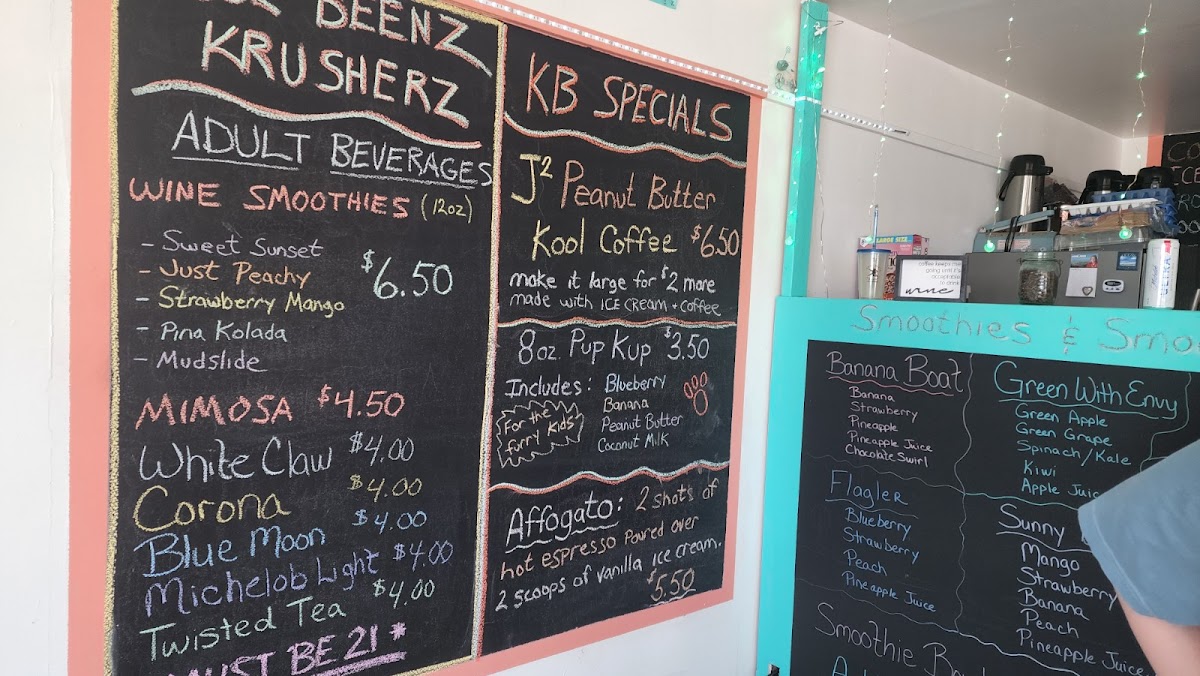 BEENZ
KRUSHERZ
ADULT BEVERAGES
WINE SMOOTHIES (12oz)
- Sweet Sunset
- Just Peachy
- Strawberry Mango
- Pina Kolada
- Mudslide
$6.50
MIMOSA $4.50
White Claw $4.00
Corona $4.00
Blue Moon $4.00
Michelob Light $4.00
Twisted Tea $4.00
MUST BE 21 *
KB SPECIALS
J² Peanut Butter
Kool Coffee $6.50
make it large for $2 more
made with ICE CREAM + COFFEE
8oz. Pup Kup $3.50
Includes: Blueberry
Banana
Peanut Butter
Coconut Milk
For the
furry kids
Affogato: 2 shots of
hot espresso Poured over
2 scoops of vanilla ice cream.
$5.50
LARGE SIZE
wine
ULTRA
Smoothies & Smo
Banana Boat
Banana
Strawberry
Pineapple
Pineapple Juice
Chocolate Swirl
Green With Envy
Green Apple
Green Grape
Spinach/Kale
Kiwi
Apple Juic
Flagler
Blueberry
Strawberry
Peach
Pineapple Juice
Sunny
Mango
Strawberry
Banana
Peach
Pineapple Juice
Smoothie Bowl